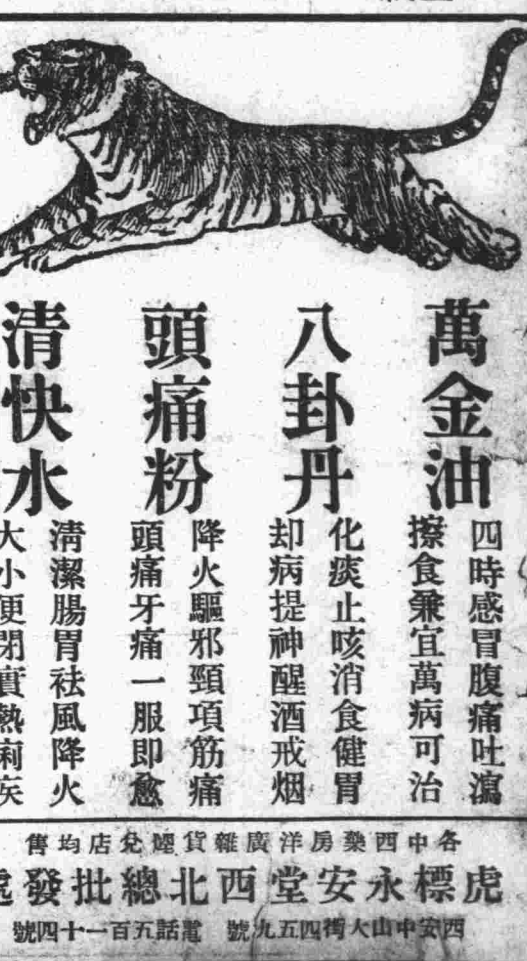 萬金油
四時感冒腹痛吐瀉
擦食兼宜萬病可治
八卦丹
化痰止咳消食健胃
却病提神醒酒戒烟
頭痛粉
降火驅邪頸項筋痛
頭痛牙痛一服即愈
清快水
清潔腸胃祛風降火
大小便閉實熱痢疾
各中西藥房洋廣雜貨烟兌店均售
虎標永安堂西北總批發處
西安中山大街四五九號 電話五百一十四號